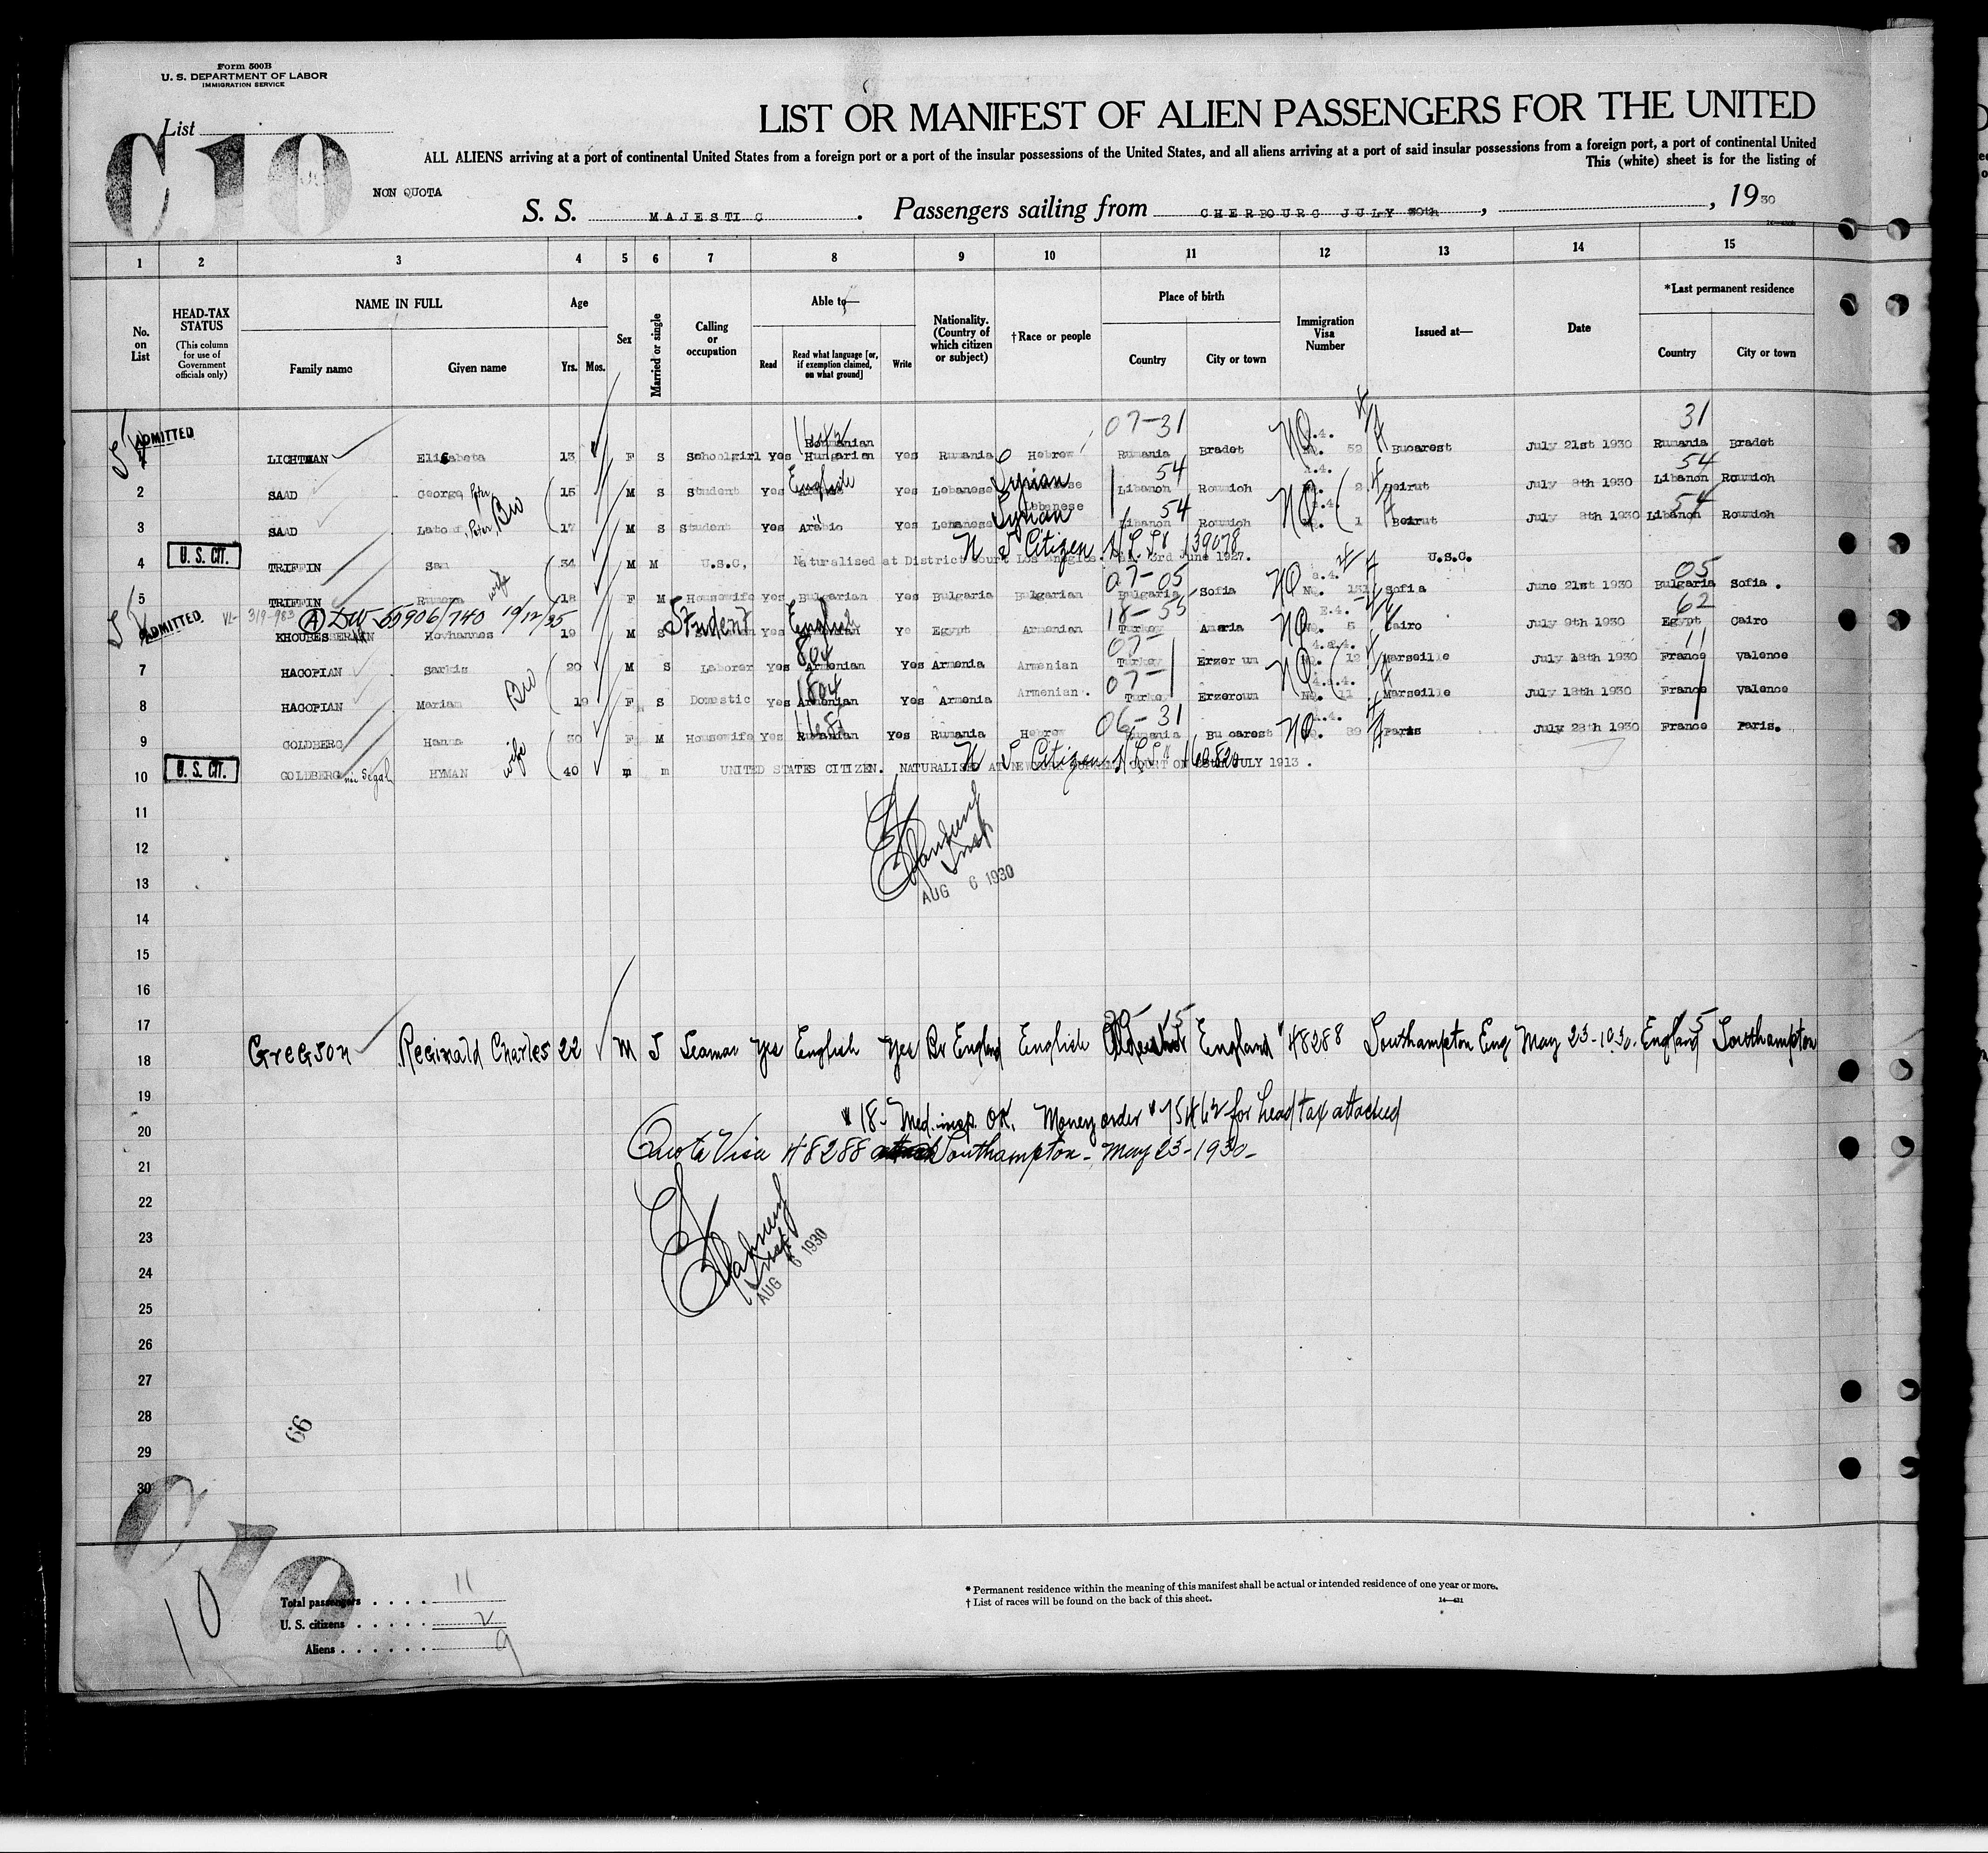 Form 500B
U. S. DEPARTMENT OF LABOR
IMMIGRATION SERVICE
List
C10
NON QUOTA
LIST OR MANIFEST OF ALIEN PASSENGERS FOR THE UNITED
ALL ALIENS arriving at a port of continental United States from a foreign port or a port of the insular possessions of the United States, and all aliens arriving at a port of said insular possessions from a foreign port, a port of continental United
This (white) sheet is for the listing of
S. S. MAJESTIC. Passengers sailing from CHERBOURG JULY 30th, , 1930
1 2 3 4 5 6 7 8 9 10 11 12 13 14 15
No. on List
HEAD-TAX STATUS (This column for use of Government officials only)
NAME IN FULL
Family name Given name
Age
Yrs. Mos.
Sex
Married or single
Calling or occupation
Able to—
Read Read what language [or, if exemption claimed, on what ground] Write
Nationality. (Country of which citizen or subject)
†Race or people
Place of birth
Country City or town
Immigration Visa Number
Issued at—
Date
*Last permanent residence
Country City or town
07-31 31
ADMITTED LICHTMAN Elisabeta 13 F S Schoolgirl Yes Roumanian Hungarian Yes Rumania Hebrew Rumania Bradet NQ 4. No. 52 Bucarest July 21st 1930 Rumania Bradet
54 54
2 SAAD George Peter Bro 15 M S Student Yes English Yes Lebanese Syrian Libanon Roumieh 4. 2 Beirut July 8th 1930 Libanon Roumieh
54 54
3 SAAD Peter 17 M S Student Yes Arabic Yes Lebanese Syrian Lebanese Libanon Roumieh NQ 4. 1 Beirut July 8th 1930 Libanon Roumieh
U. S. CIT. 4 TRIFFIN Sam 34 M M U.S.C. Naturalised at District Court Los Angeles. 3rd June 1927. U S Citizen 139078 U.S.C.
07-05 05
5 TRIFFIN wife 18 F M Housewife Yes Bulgarian Yes Bulgaria Bulgarian Bulgaria Sofia NQ 4. No. 131 Sofia June 21st 1930 Bulgaria Sofia.
VL- 319-983 (A) 55906/740 19/12/35 18-55 62
ADMITTED KHOUBESSERIAN Hovhannes 19 M S Student Yes English Ye Egypt Armenian Turkey NQ E.4. 5 Cairo July 9th 1930 Egypt Cairo
804 07-
7 HAGOPIAN Sarkis 20 M S Laborer Yes Armenian Yes Armenia Armenian Turkey Erzeroun NQ 4.a.4. No. 12 Marseille July 18th 1930 France Valence
Bro 1804 07-
8 HAGOPIAN Marian 19 F S Domestic Yes Armenian Yes Armenia Armenian. Turkey Erzeroun 4.a.4. No. 11 Marseille July 18th 1930 France Valence
06-31
9 GOLDBERG Hanna 30 F M Housewife Yes Rumanian Yes Rumania Hebrew Rumania Bucarest NQ 4. 89 Paris July 28th 1930 France Paris.
U. S. CIT. 10 GOLDBERG née Segal HYMAN wife 40 m m UNITED STATES CITIZEN. NATURALISED AT NEW YORK COURT ON JULY 1913. U S Citizen
11
12
Insp
13
AUG 6 1930
14
15
16
17
05-15 15
18 Gregson Reginald Charles 22 M S Seaman Yes English Yes Br England English England #48288 Southampton Eng May 23-1930. England Southampton
19
#18- Med. insp. OK. Money order #75462 for head tax attached
20
Quota Visa 48288 Southampton - May 23-1930-
21
22
23
Insp
AUG 6 1930
24
25
26
27
28
66
29
30
C10
10
Total passengers . . . . 11
U. S. citizens . . . . . 2
Aliens . . . . . . 9
* Permanent residence within the meaning of this manifest shall be actual or intended residence of one year or more.
† List of races will be found on the back of this sheet.
14—431